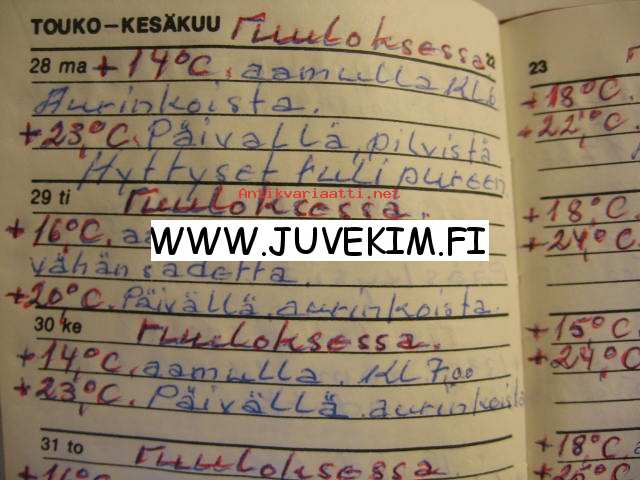 TOUKO–KESÄKUU Tuuloksessa. 22
28 ma +14°C. aamulla KL 6
Aurinkoista.
+23°C. Päivällä pilvistä
Hyttyset tuli pureen.
Antikvariaatti.net
29 ti Tuuloksessa.
+16°C.
WWW.JUVEKIM.FI
vähän sadetta.
+20°C. Päivällä aurinkoista.
30 ke Tuuloksessa.
+14°C. aamulla. KL 7,00
+23°C. Päivällä aurinkoista
31 to Tuuloksessa
23
+18°C.
+22°C.
+18°C.
+24°C.
+15°C.
+24°C.
+18°C.